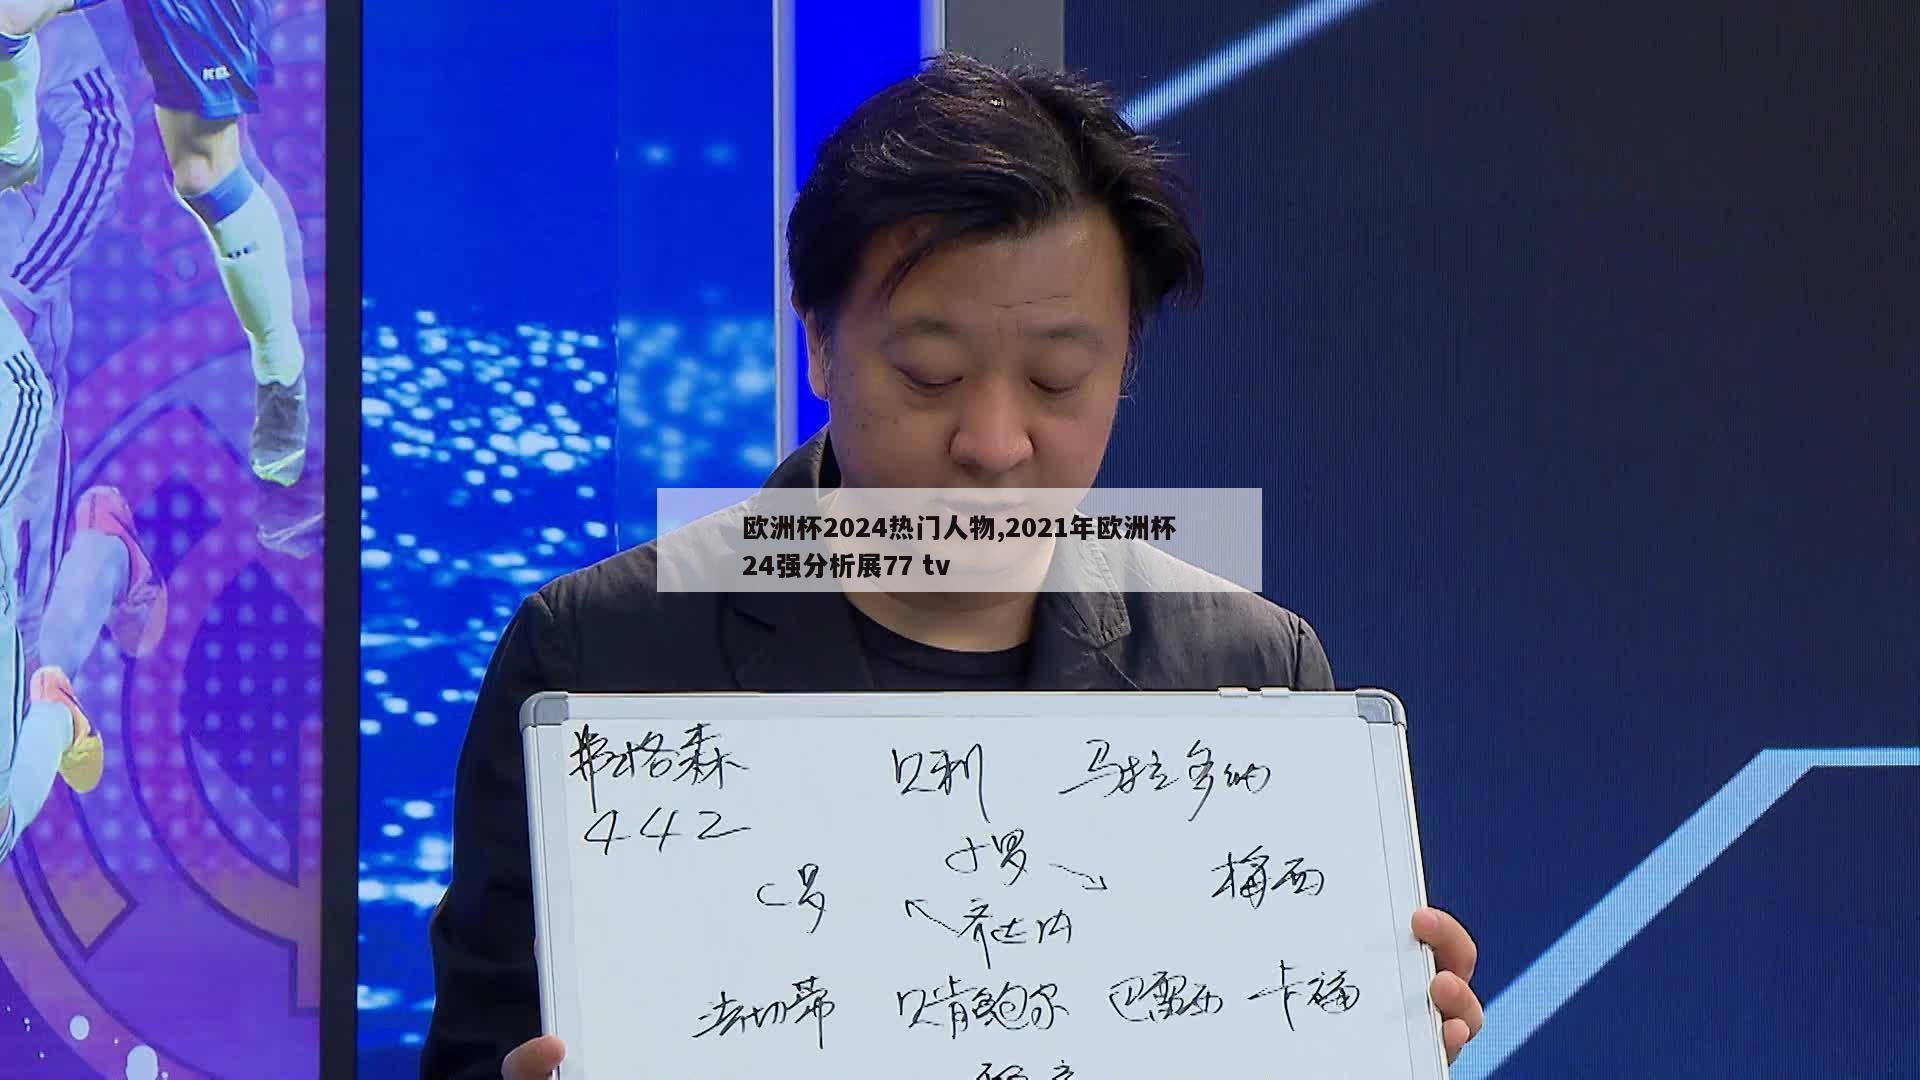 欧洲杯2024热门人物,2021年欧洲杯
24强分析展77 tv
弗格森 贝利 马拉多纳
442
小罗
C罗 梅西
齐达内
法切蒂 贝肯鲍尔 巴雷西 卡福